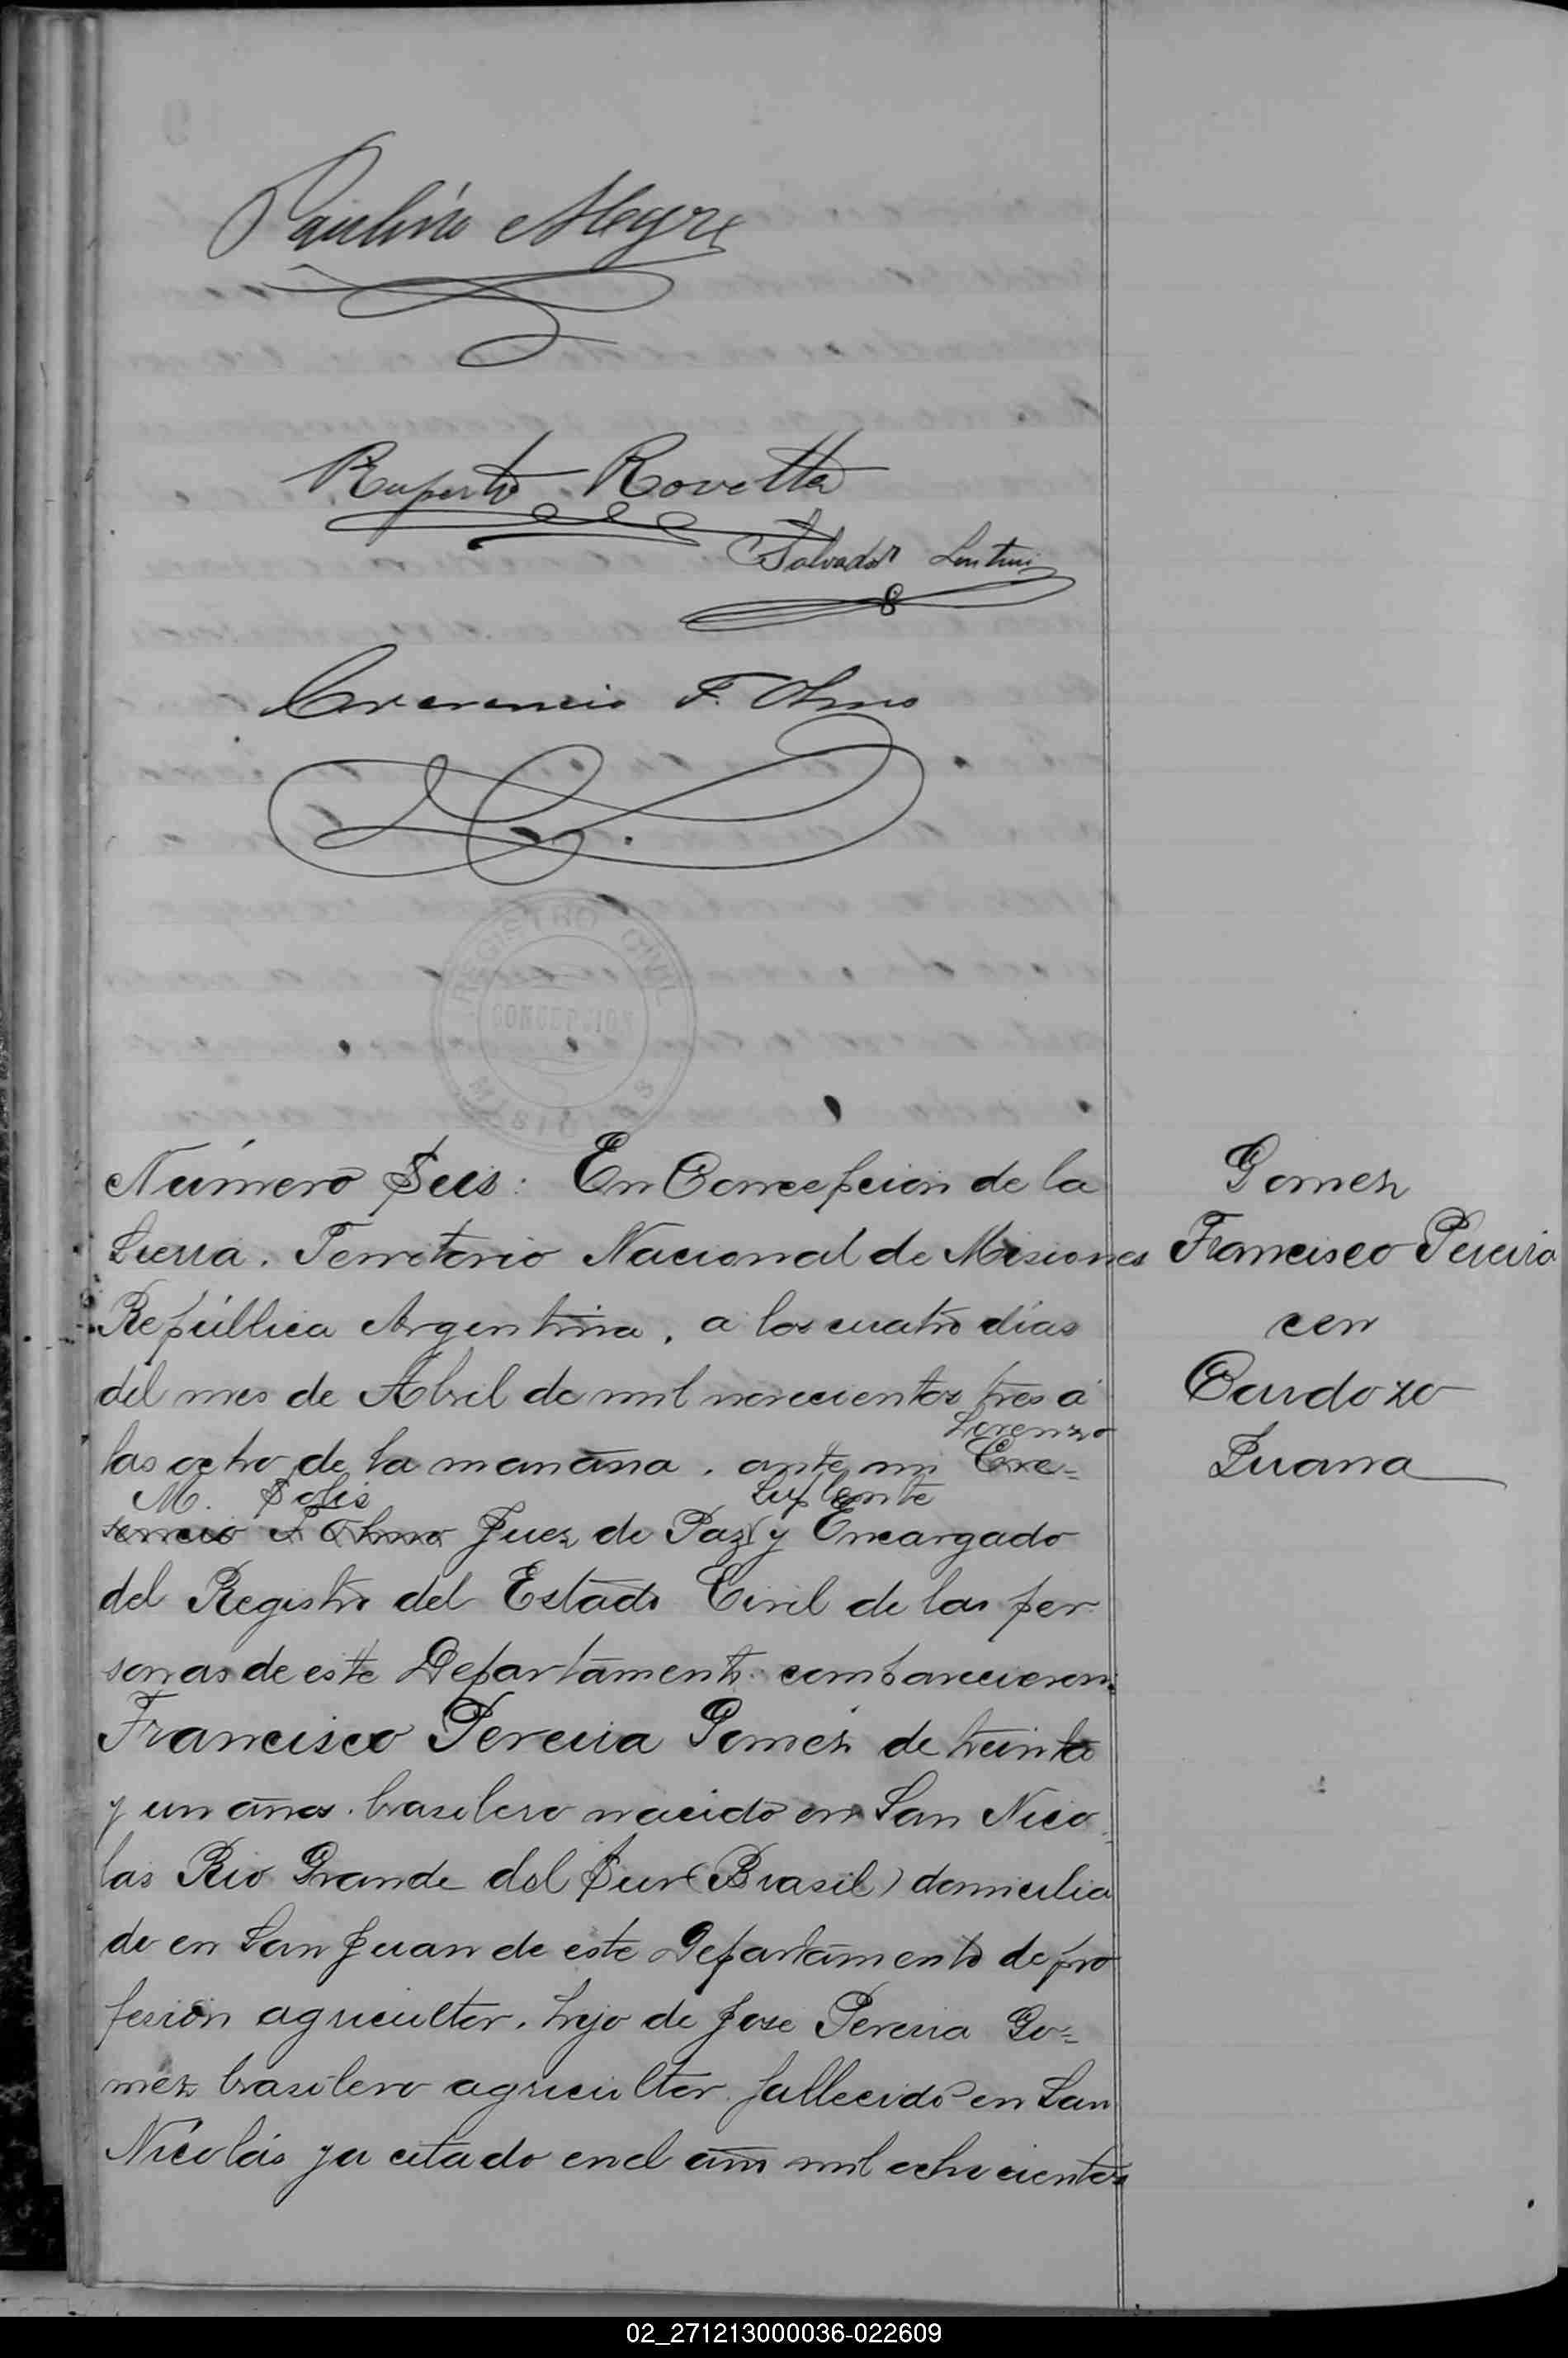 Paulino Alegre
Ruperto Rovetta
Salvador Lentini
Crecencio F. Olmo
REGISTRO CIVIL
CONCEPCION
MISIONES
Número Seis: En Concepcion de la
Sierra. Territorio Nacional de Misiones
República Argentina, a los cuatro días
del mes de Abril de mil novecientos tres á
Lorenzo
las ocho de la mañana, ante mi Cre=
M. Solis Suplente
sencio F Olmo Juez de Paz y Encargado
del Registro del Estado Civil de las per
sonas de este Departamento comparecieron:
Francisco Pereira Gomez de treinta
y un años. brasilero nacido en San Nico
las Rio Grande del Sur (Brasil) domicilia
do en San Juan de este Departamento de pro
fesión agricultor, hijo de José Pereira Go=
mez brasilero agricultor fallecido en San
Nicolás ya citado en el año mil ochocientos
Gomez
Francisco Pereira
con
Cardozo
Juana
02_271213000036-022609